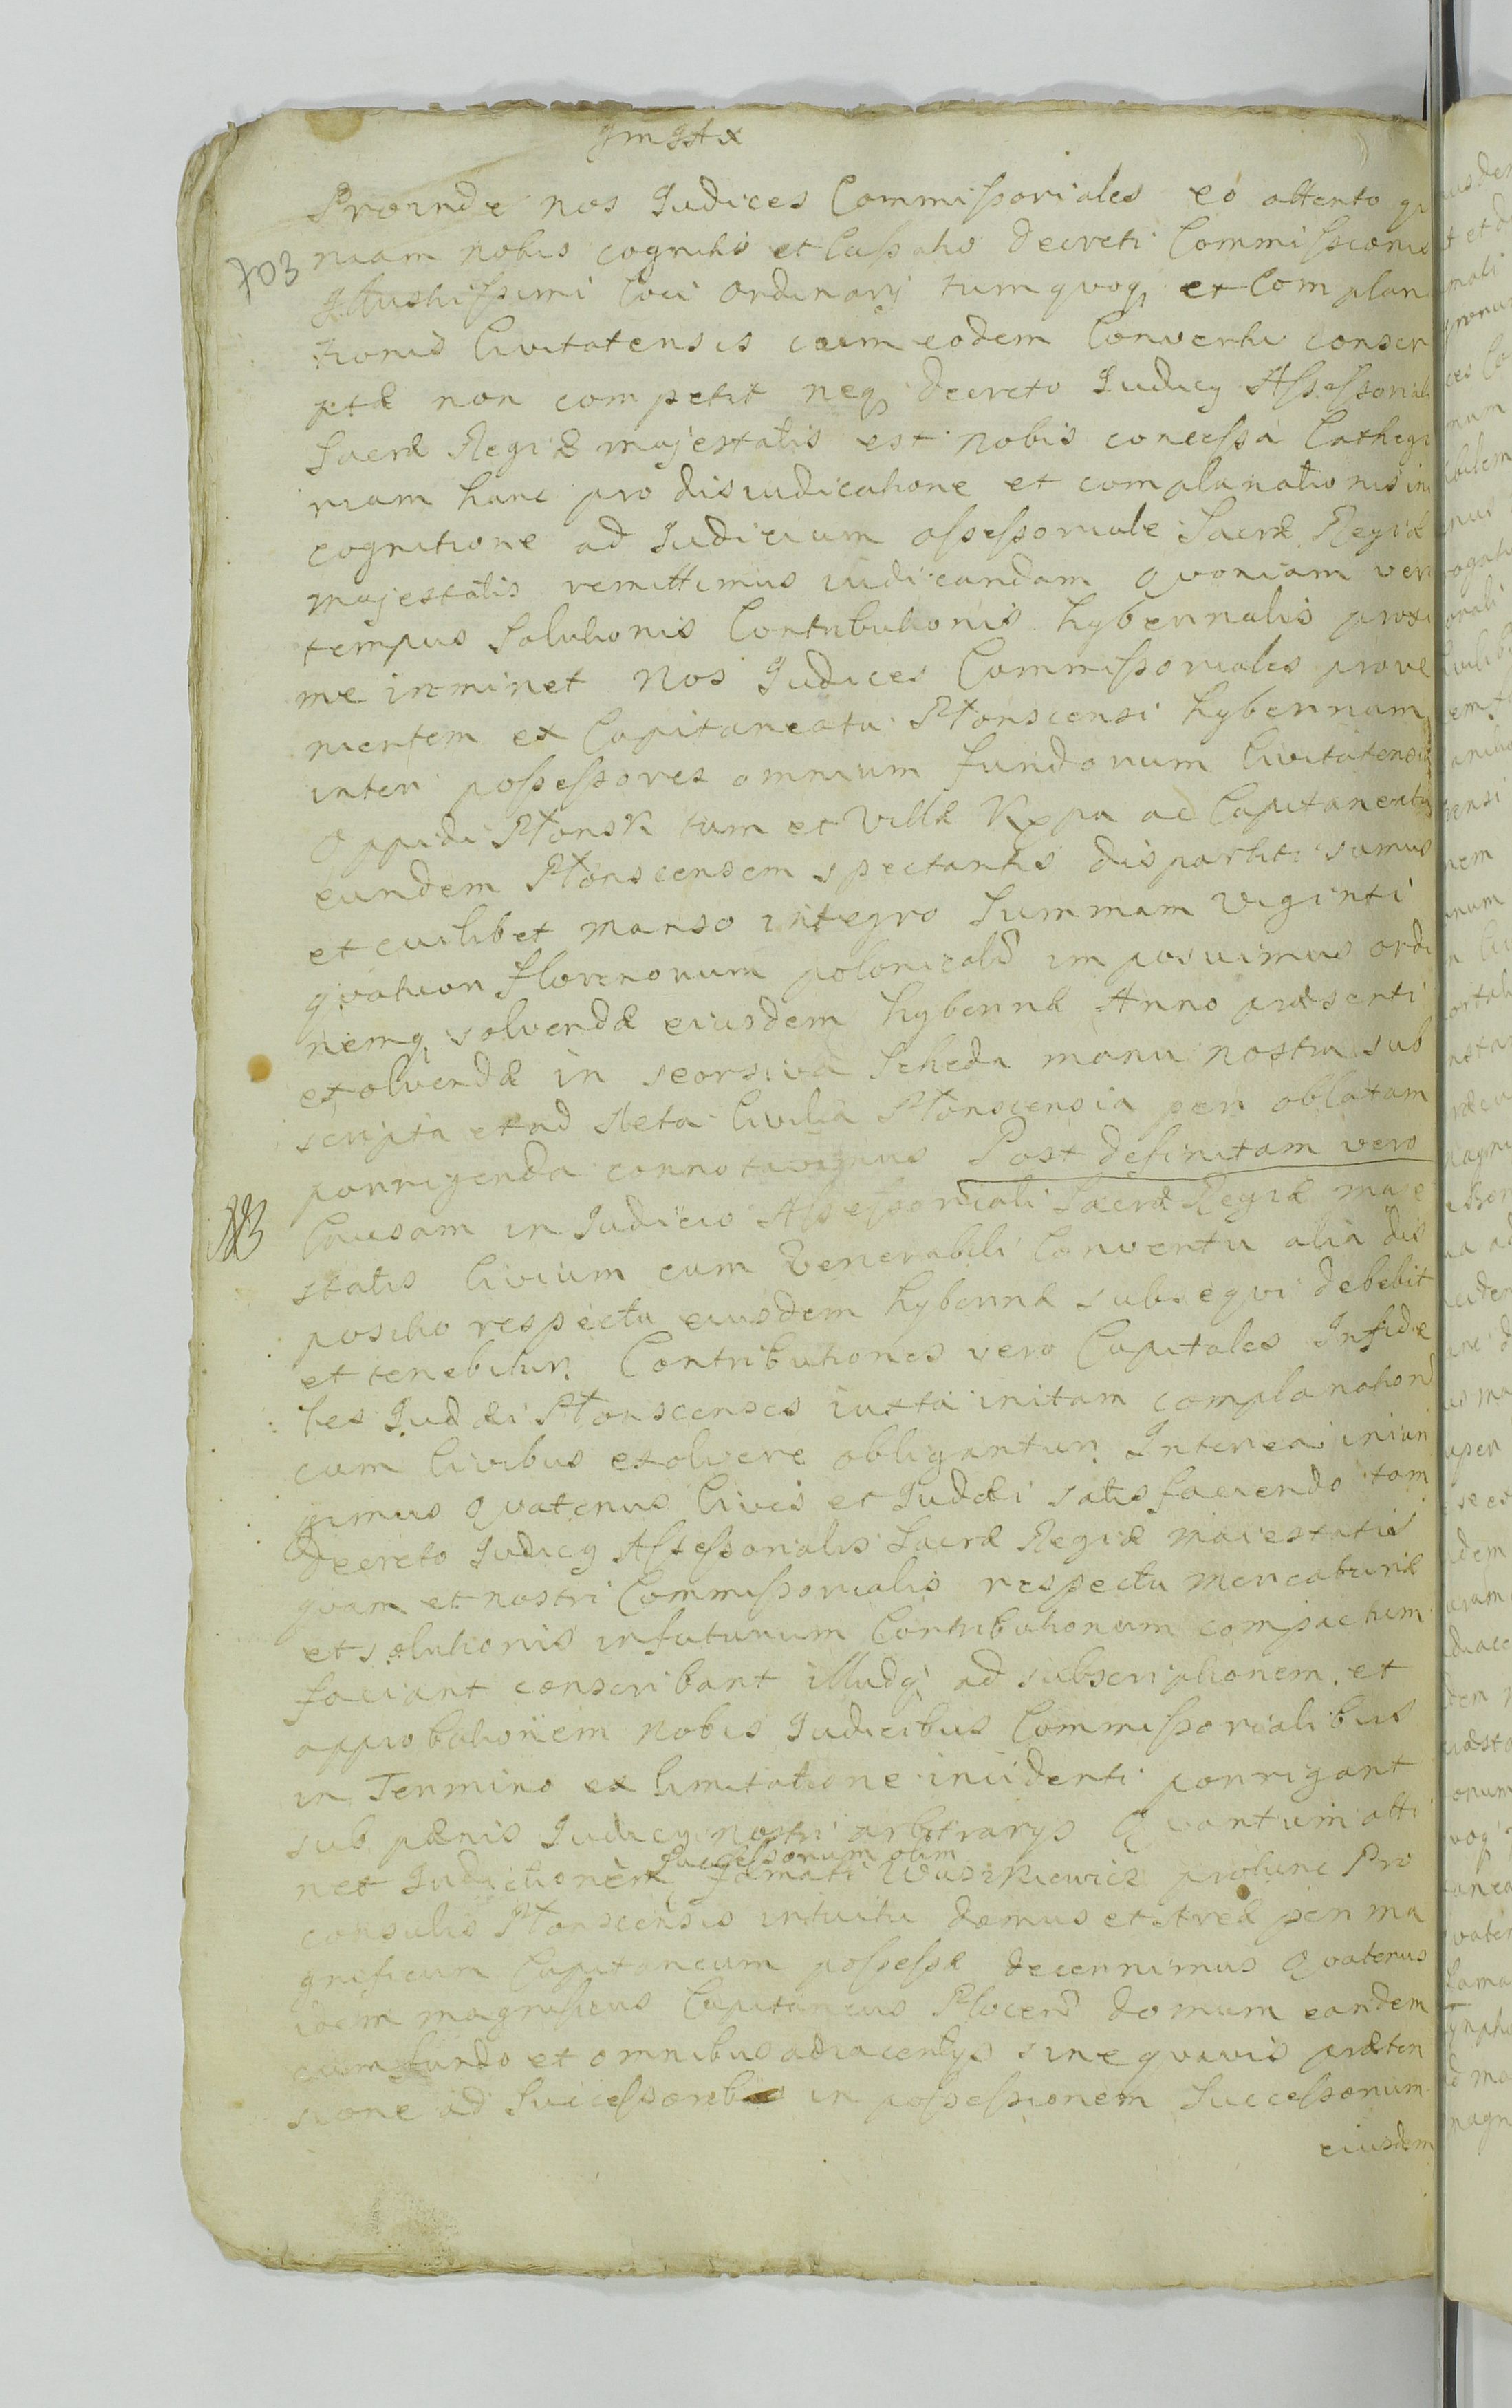 Proinde nos Judices Commissoriales eò attento qu
703
niam nobis cognitio et Cassatio Decreti Commissionis
Illustrissimi Loci Ordinarij tum quoq; et Complan
tionis Civitatensis cum eodem Conventu conscri
ptæ non competit neq; Decreto Judicij Assessorial
Sacræ Regiæ majestatis est nobis concessa Cathego
riam hanc pro disiudicatione et complanationis in
cognitione ad Judicium assessoriale Sacræ Regiæ
majestatis remittimus iudicandam Quoniam vero
tempus Solutionis Contributionis hybernalis proxi
me inminet Nos Judices Commissoriales prove
nientem ex Capitaneatu Płonscensi hybernam
inter possessores omnium fundorum Civitatensiu
Oppidi Płonsk tum et Villæ ad Capitaneatu
eundem Płonscensem spectantis dispartiti sumus
et cuilibet manso integro Summam viginti
quatuor florenorum polonicaliu imposuimus ordi
nemq; solvendæ eiusdem hybernæ Anno præsenti
exolvendæ in seorsiva Scheda manu nostra sub
scripta et ad Acta Civilia Płonscensia per oblatam
porrigenda connotavimus Post definitam vero
Causam in Judicio Assessoriali Sacræ Regiæ maje
statis Civium cum Venerabili Conventu alia dis
positio respectu eiusdem hybernæ subsequi debebit
et tenebitur. Contributiones vero Capitales Infide
les Judæi Płonscenses iuxta initam complanation
cum Civibus exolvere obligantur. Interea iniun
gimus Quatenus Cives et Judæi satisfaciendo tam
Decreto Judicij Assessorialis Sacræ Regiæ maiestatis
quam et nostri Commissorialis respectu mercaturæ
et solutionis infuturum Contributionum compactum
faciant conscribant illudq; ad subscriptionem et
approbationem nobis Judicibus Commissorialibus
in Termino ex limitatione incidenti porrigant
sub pænis Judicij nostri arbitrarys Quantum atti
Successorum olim
net Inductionem famati Waszkiewicz protunc Pro
consulis Płonscensis intuitu domus et Areæ per ma
gnificum Capitaneum possessæ decernimus Quatenus
idem magnificus Capitaneus Plocen domum eandem
cum fundo et omnibus adiacentys sine quavis præten
sione ad in possessionem Successorum
eiusdem